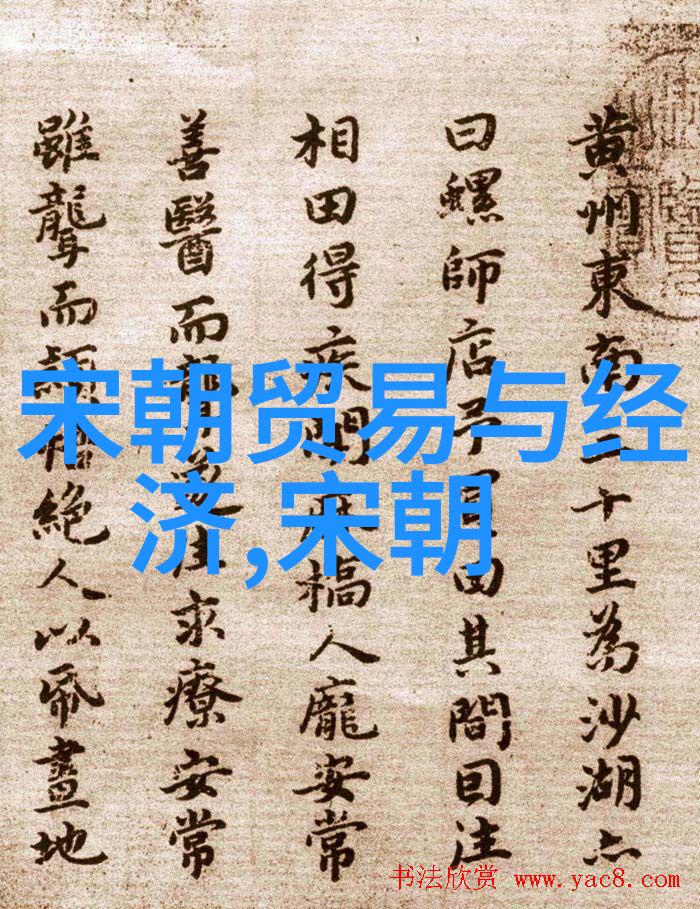 黄州東南三十里為沙湖
曰螺師店予買田其間囙注
相田得疾聞麻橋人龐安常
善醫而聾遂往求療安常
雖聾而穎悟絶人以帋畫地
宋朝贸易与经
济,宋朝
书法欣赏 www.yac8.com